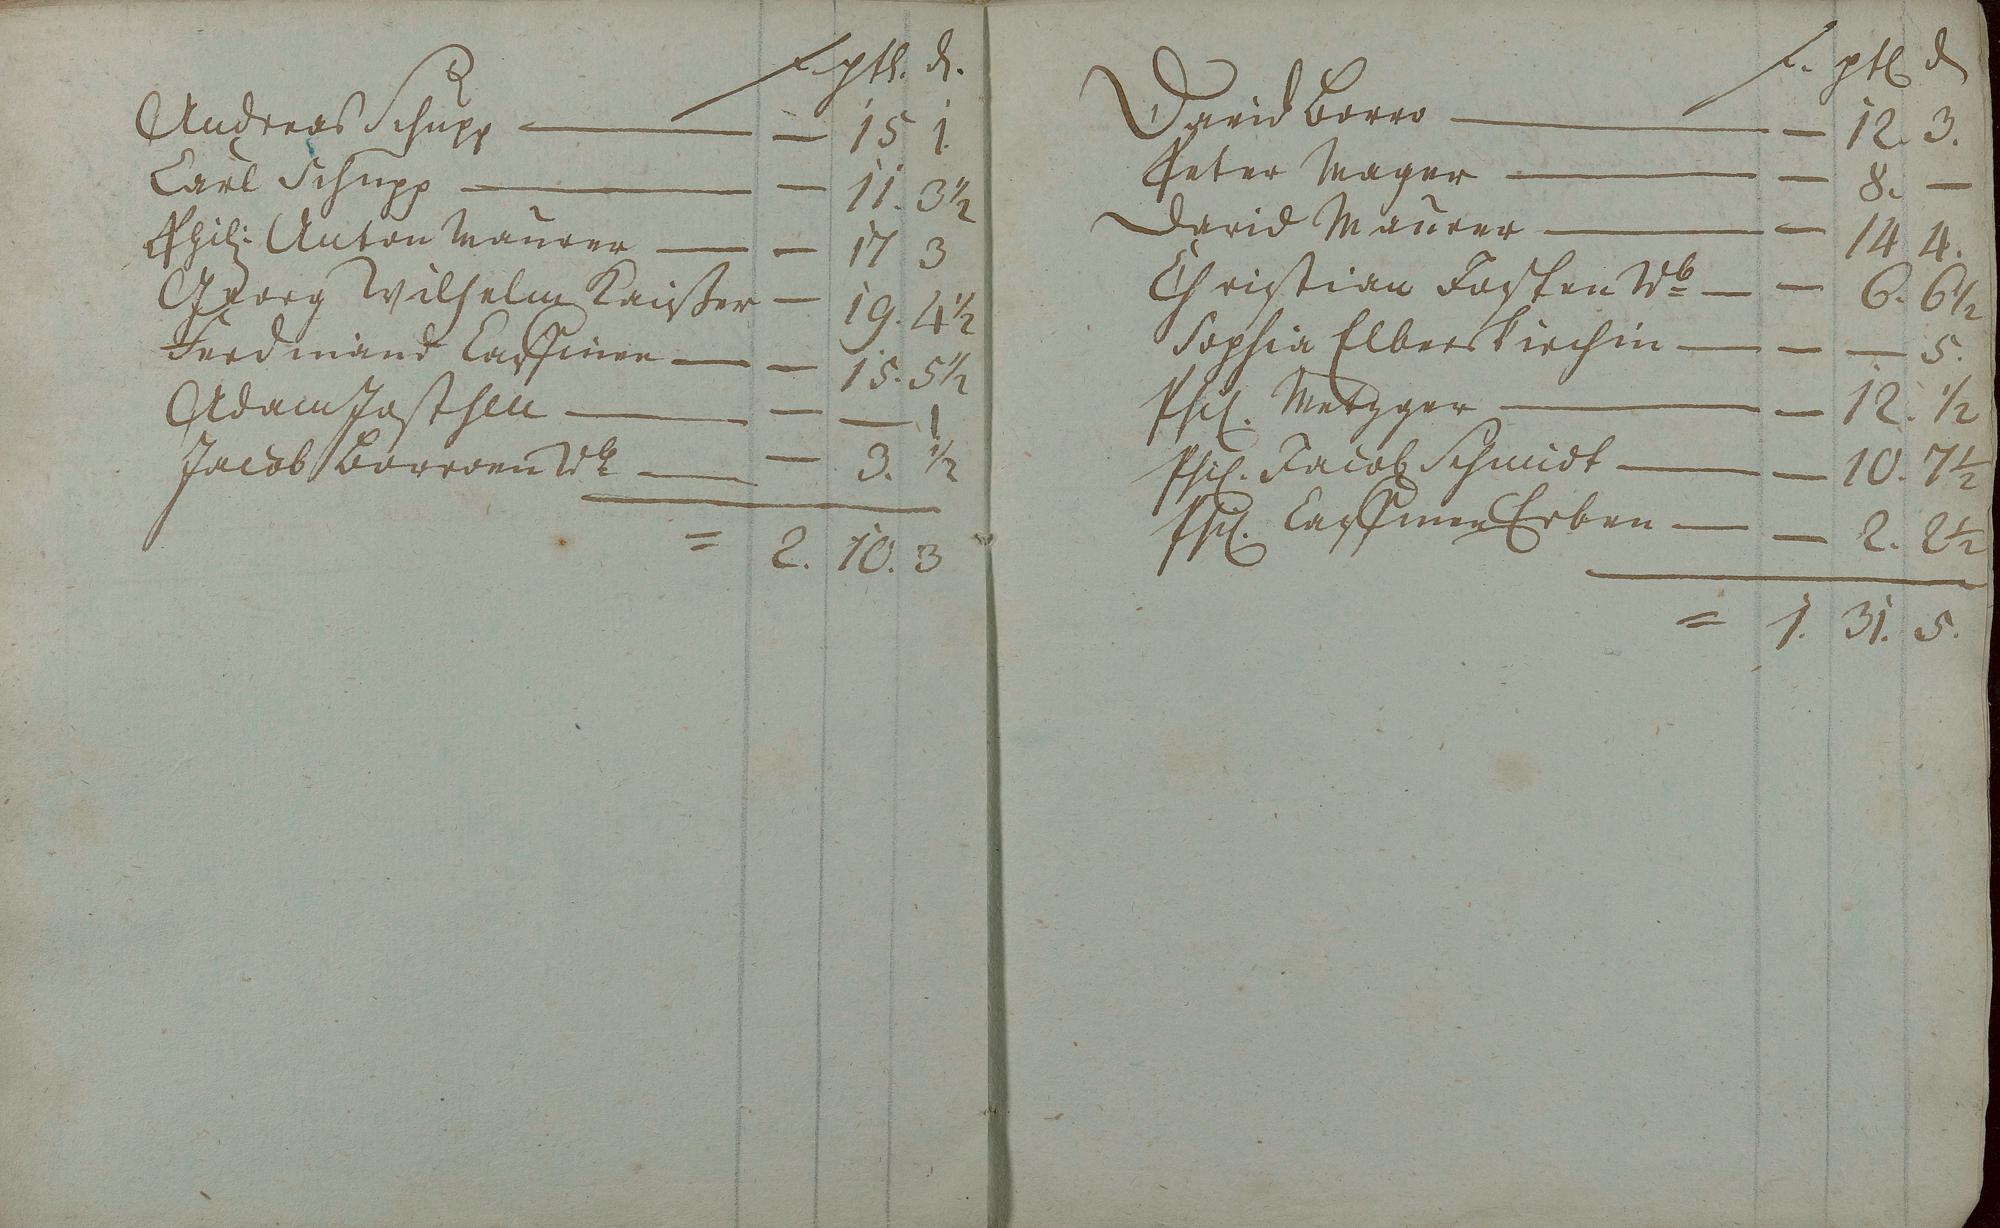 f. ptl. d.
Andreas Schupp — — 15 1.
Carl Schupp — — 11. 3½
Phil: Anton Maurer — — 17 3
Georg Wilhelm Kaißer — 19. 4½
Ferdinand — — 15. 5½
Adam Josthen — — — 1
Jacob Borroen Wb — — 3. ½
= 2. 10. 3
f. ptl d
David Borro — — 12. 3.
Peter Mager — — 8. —
David Maurer — — 14 4.
Christian Wb — — 6. 6½
Sophia Elberskirchin — — — 5.
Phil. Metzger — — 12. ½
Phil. Jacob Schmidt — — 10. 7½
Phil. Erben — — 2. 2½
= 1. 31. 5.